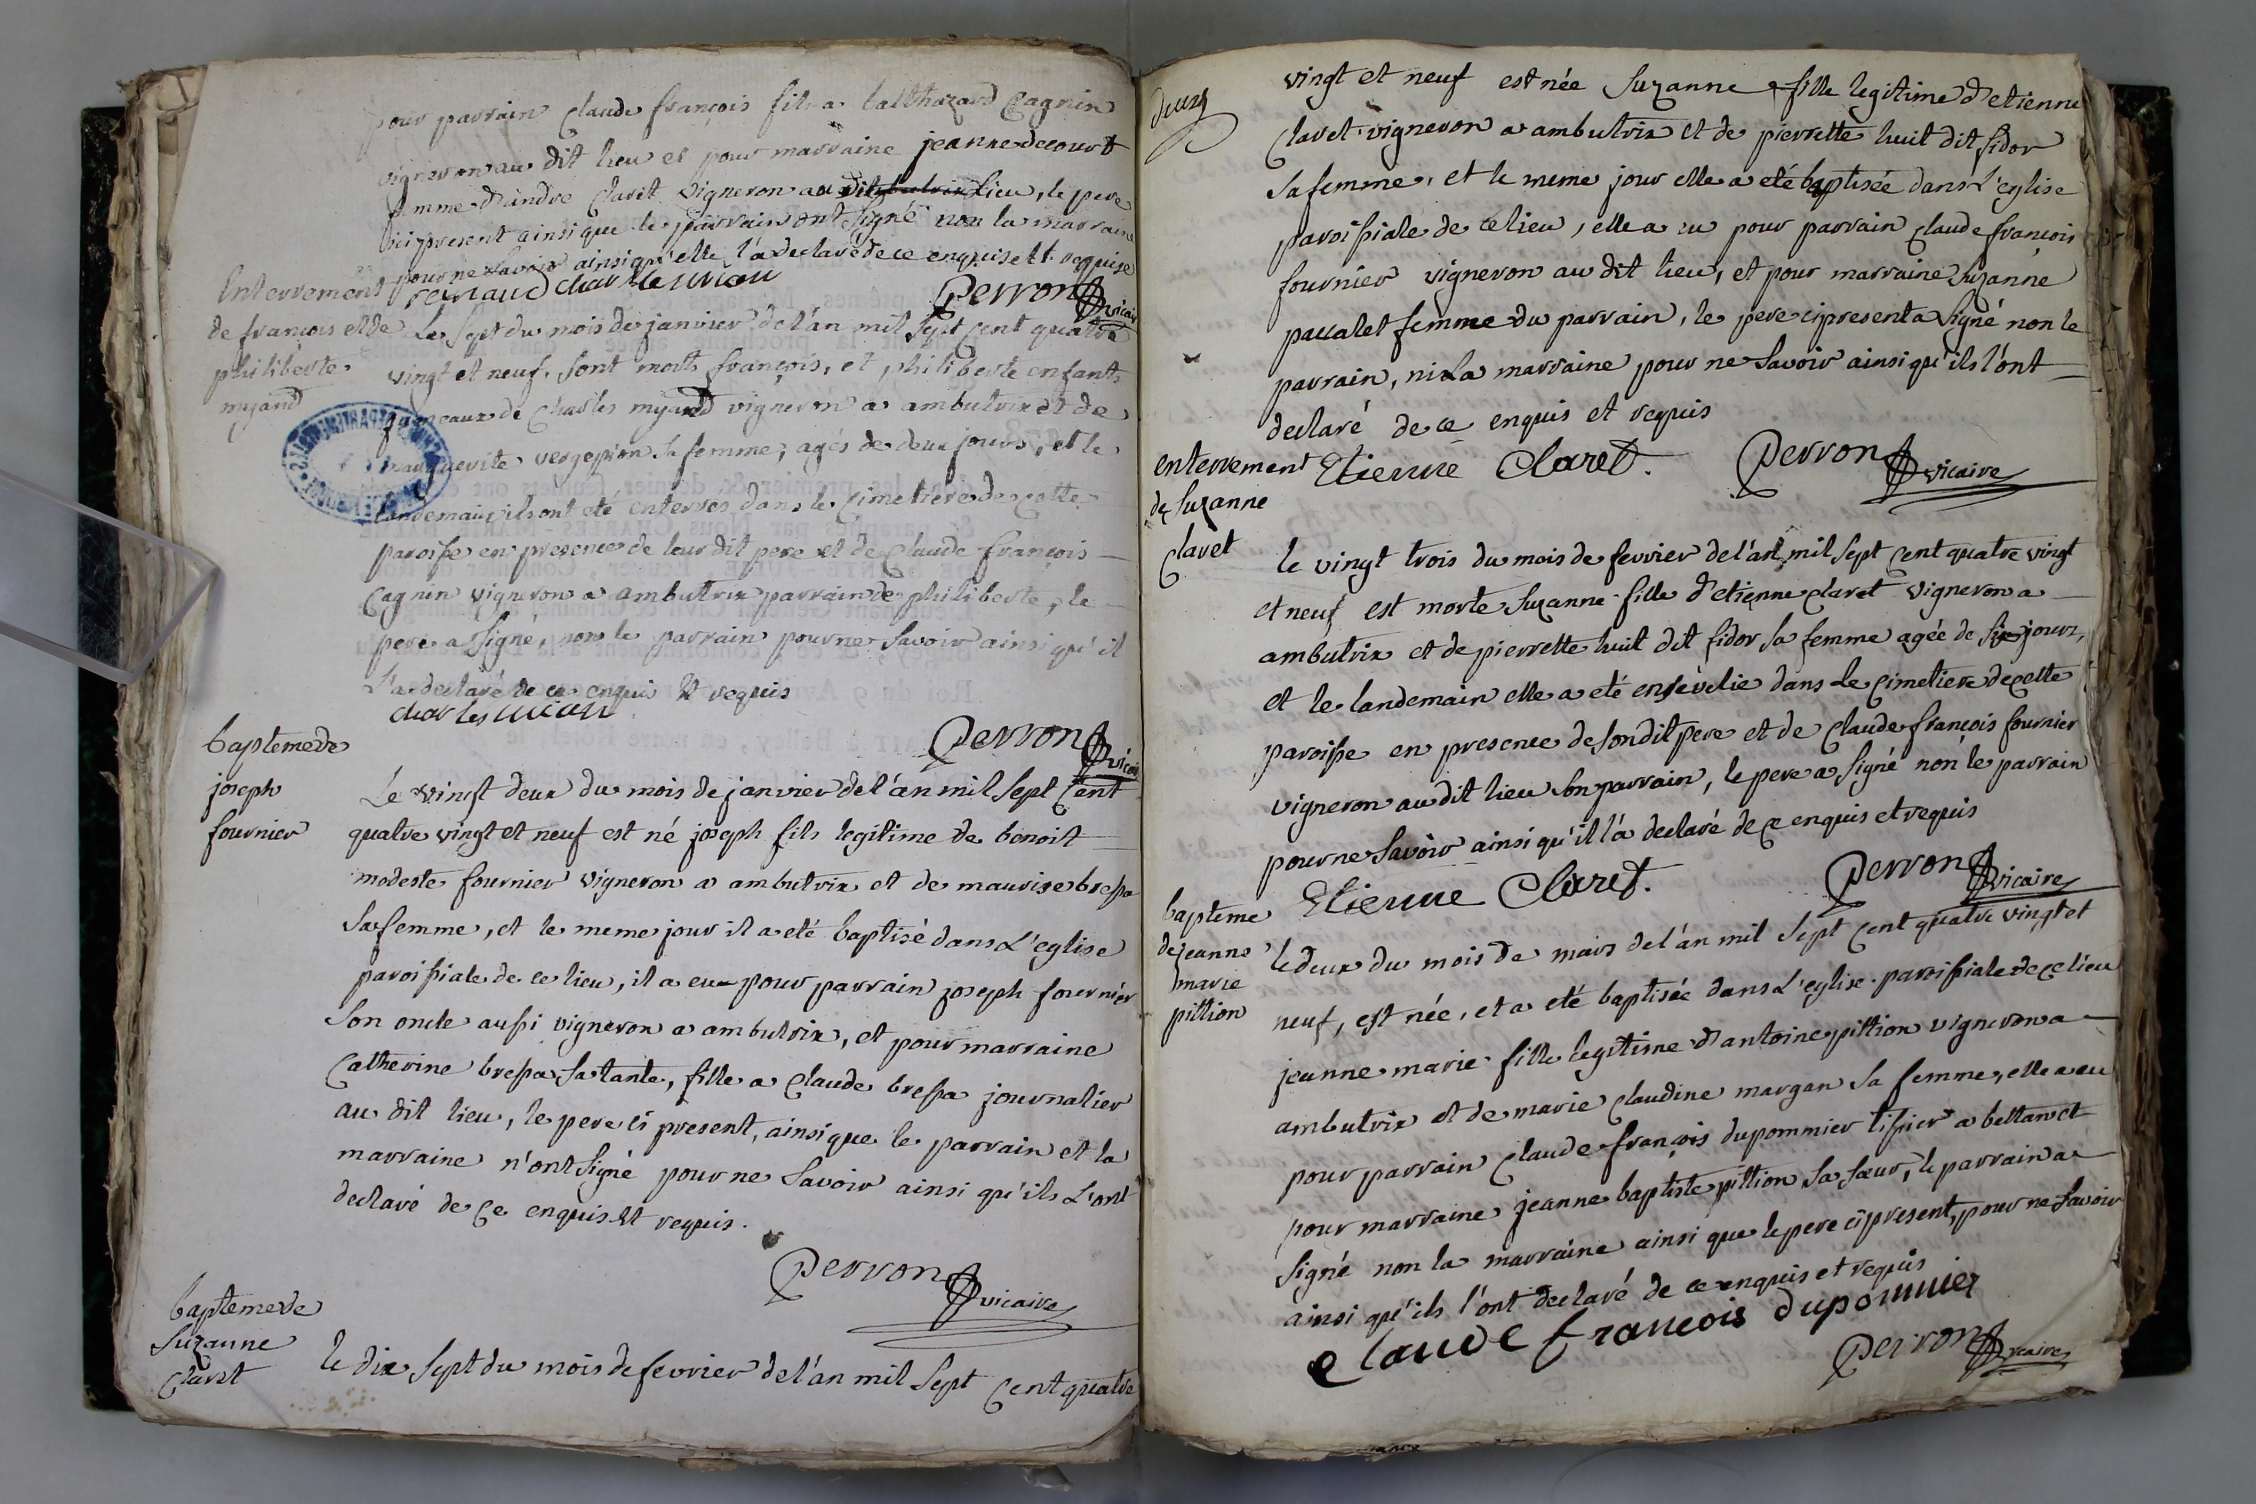 pour parrain claude françois fils a balthazard Cagnin
vigneron au dit lieu et pour marraine jeanne decourt
femme d'andre claret vigneron au dit lieu, le pere
ici present ainsi que le parrain ont signé non la marraine
pour ne savoir ainsi qu'elle l'a declaré de ce enquise et requise
charle
Perron vicaire
Enterrement
de françois et de
philiberte
myand
Le sept du mois de janvier de l'an mil sept cent quatre
vingt et neuf, sont morts françois, et philiberte enfants
jumeaux de charles myand vigneron a ambutrix et de
marguerite vergepion sa femme, agés de deux jours, et le
landemain, ils ont eté enterrés dans le cimetiere de cette
paroisse en presence de leur dit pere et de claude françois
Cagnin vigneron a ambutrix parrain de philiberte, le
pere a signé, non le parrain pour ne savoir ainsi qu'il
l'a declaré de ce enquis et requis
charles
Perron vicaire
baptême de
joseph
fournier
Le vingt deux du mois de janvier de l'an mil sept cent
quatre vingt et neuf est né joseph fils legitime de benoit
modeste fournier vigneron a ambutrix et de maurise bressa
sa femme, et le meme jour il a eté baptisé dans l'eglise
paroissiale de ce lieu, il a eu pour parrain joseph fournier
son oncle aussi vigneron a ambutrix, et pour marraine
catherine bressa sa tante, fille a claude bressa journalier
au dit lieu, le pere ci present, ainsi que le parrain et la
marraine n'ont signé pour ne savoir ainsi qu'ils l'ont
declaré de ce enquis et requis.
Perron vicaire
baptême de
Suzanne
Claret
le dix sept du mois de fevrier de l'an mil sept cent quatre
deux
vingt et neuf est née Suzanne fille legitime d'etienne
Claret vigneron a ambutrix et de pierrette huit dit fidor
sa femme, et le meme jour elle a eté baptisée dans l'eglise
paroissiale de ce lieu, elle a eu pour parrain claude françois
fournier vigneron au dit lieu, et pour marraine Suzanne
paccalet femme du parrain, le pere ci present a signé non le
parrain, ni la marraine pour ne savoir ainsi qu'ils l'ont
declaré de ce enquis et requis
Etienne Claret.
Perron vicaire
enterrement
de Suzanne
Claret
le vingt trois du mois de fevrier de l'an mil sept cent quatre vingt
et neuf est morte Suzanne fille d'etienne claret vigneron a
ambutrix et de pierrette huit dit fidor sa femme agée de six jours,
et le landemain elle a eté ensevelie dans le cimetiere de cette
paroisse en presence de son dit pere et de claude françois fournier
vigneron au dit lieu son parrain, le pere a signé non le parrain
pour ne savoir ainsi qu'il l'a declaré de ce enquis et requis
Etienne Claret.
Perron vicaire
bapteme
de jeanne
marie
pittion
le deux du mois de mars de l'an mil sept cent quatre vingt et
neuf, est née, et a eté baptisée dans l'eglise paroissiale de ce lieu
jeanne marie fille legitime d'antoine pittion vigneron a
ambutrix et de marie claudine margan sa femme, elle a eu
pour parrain claude françois dupommier tissier a bettan et
pour marraine jeanne baptiste pittion sa sœur, le parrain a
signé non la marraine ainsi que le pere ci present, pour ne savoir
ainsi qu'ils l'ont declaré de ce enquis et requis
claude francois dupommier
Perron vicaire